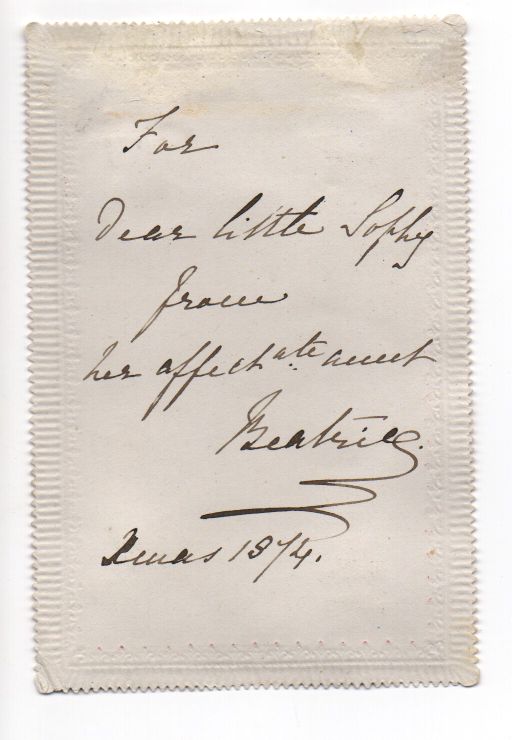 For
Dear little Sophy
from
her affectate aunt
Beatrice.
Xmas 1874.